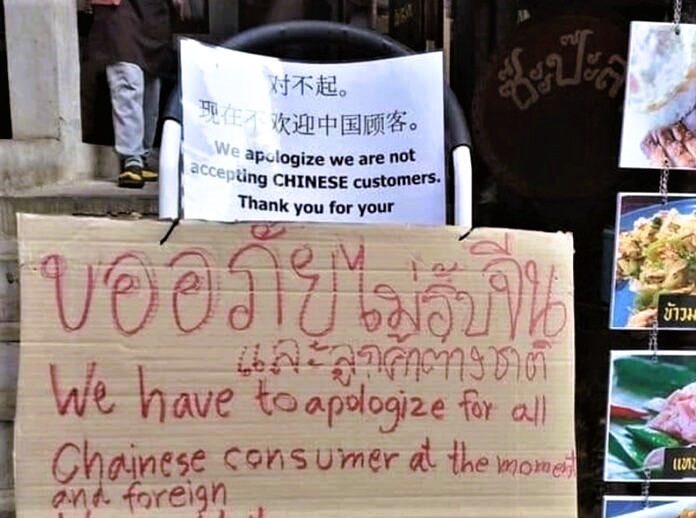 对不起。
现在不欢迎中国顾客。
We apologize we are not
accepting CHINESE customers.
Thank you for your
ขออภัยไม่รับจีน
และลูกค้าต่างชาติ
We have to apologize for all
Chainese consumer at the moment
and foreign
ข้าวม